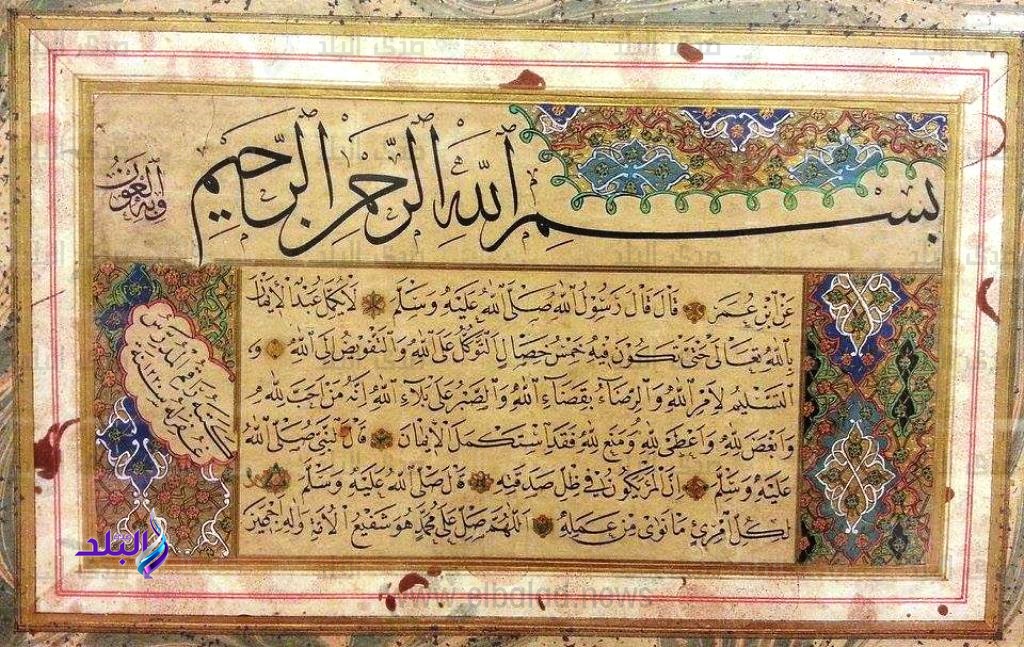 بسم الله الرحمن الرحيم
وبه العون
عن ابن عمر قال قال رسول الله صلى الله عليه وسلم لا يكمل عبد الإيمان
بالله تعالى حتى تكون فيه خمس خصال التوكل على الله والتفويض إلى الله و
التسليم لأمر الله والرضاء بقضاء الله والصبر على بلاء الله إنه من أحب لله
وابغض لله واعطى لله ومنع لله فقد استكمل الإيمان قال النبي صلى الله
عليه وسلم إن المرء يكون في ظل صدقته قال صلى الله عليه وسلم
لكل امرئ ما نوى من عمله اللهم صل على محمد هو شفيع الأمة وآله أجمعين
البلد
www.elbalad.news
صدى البلد